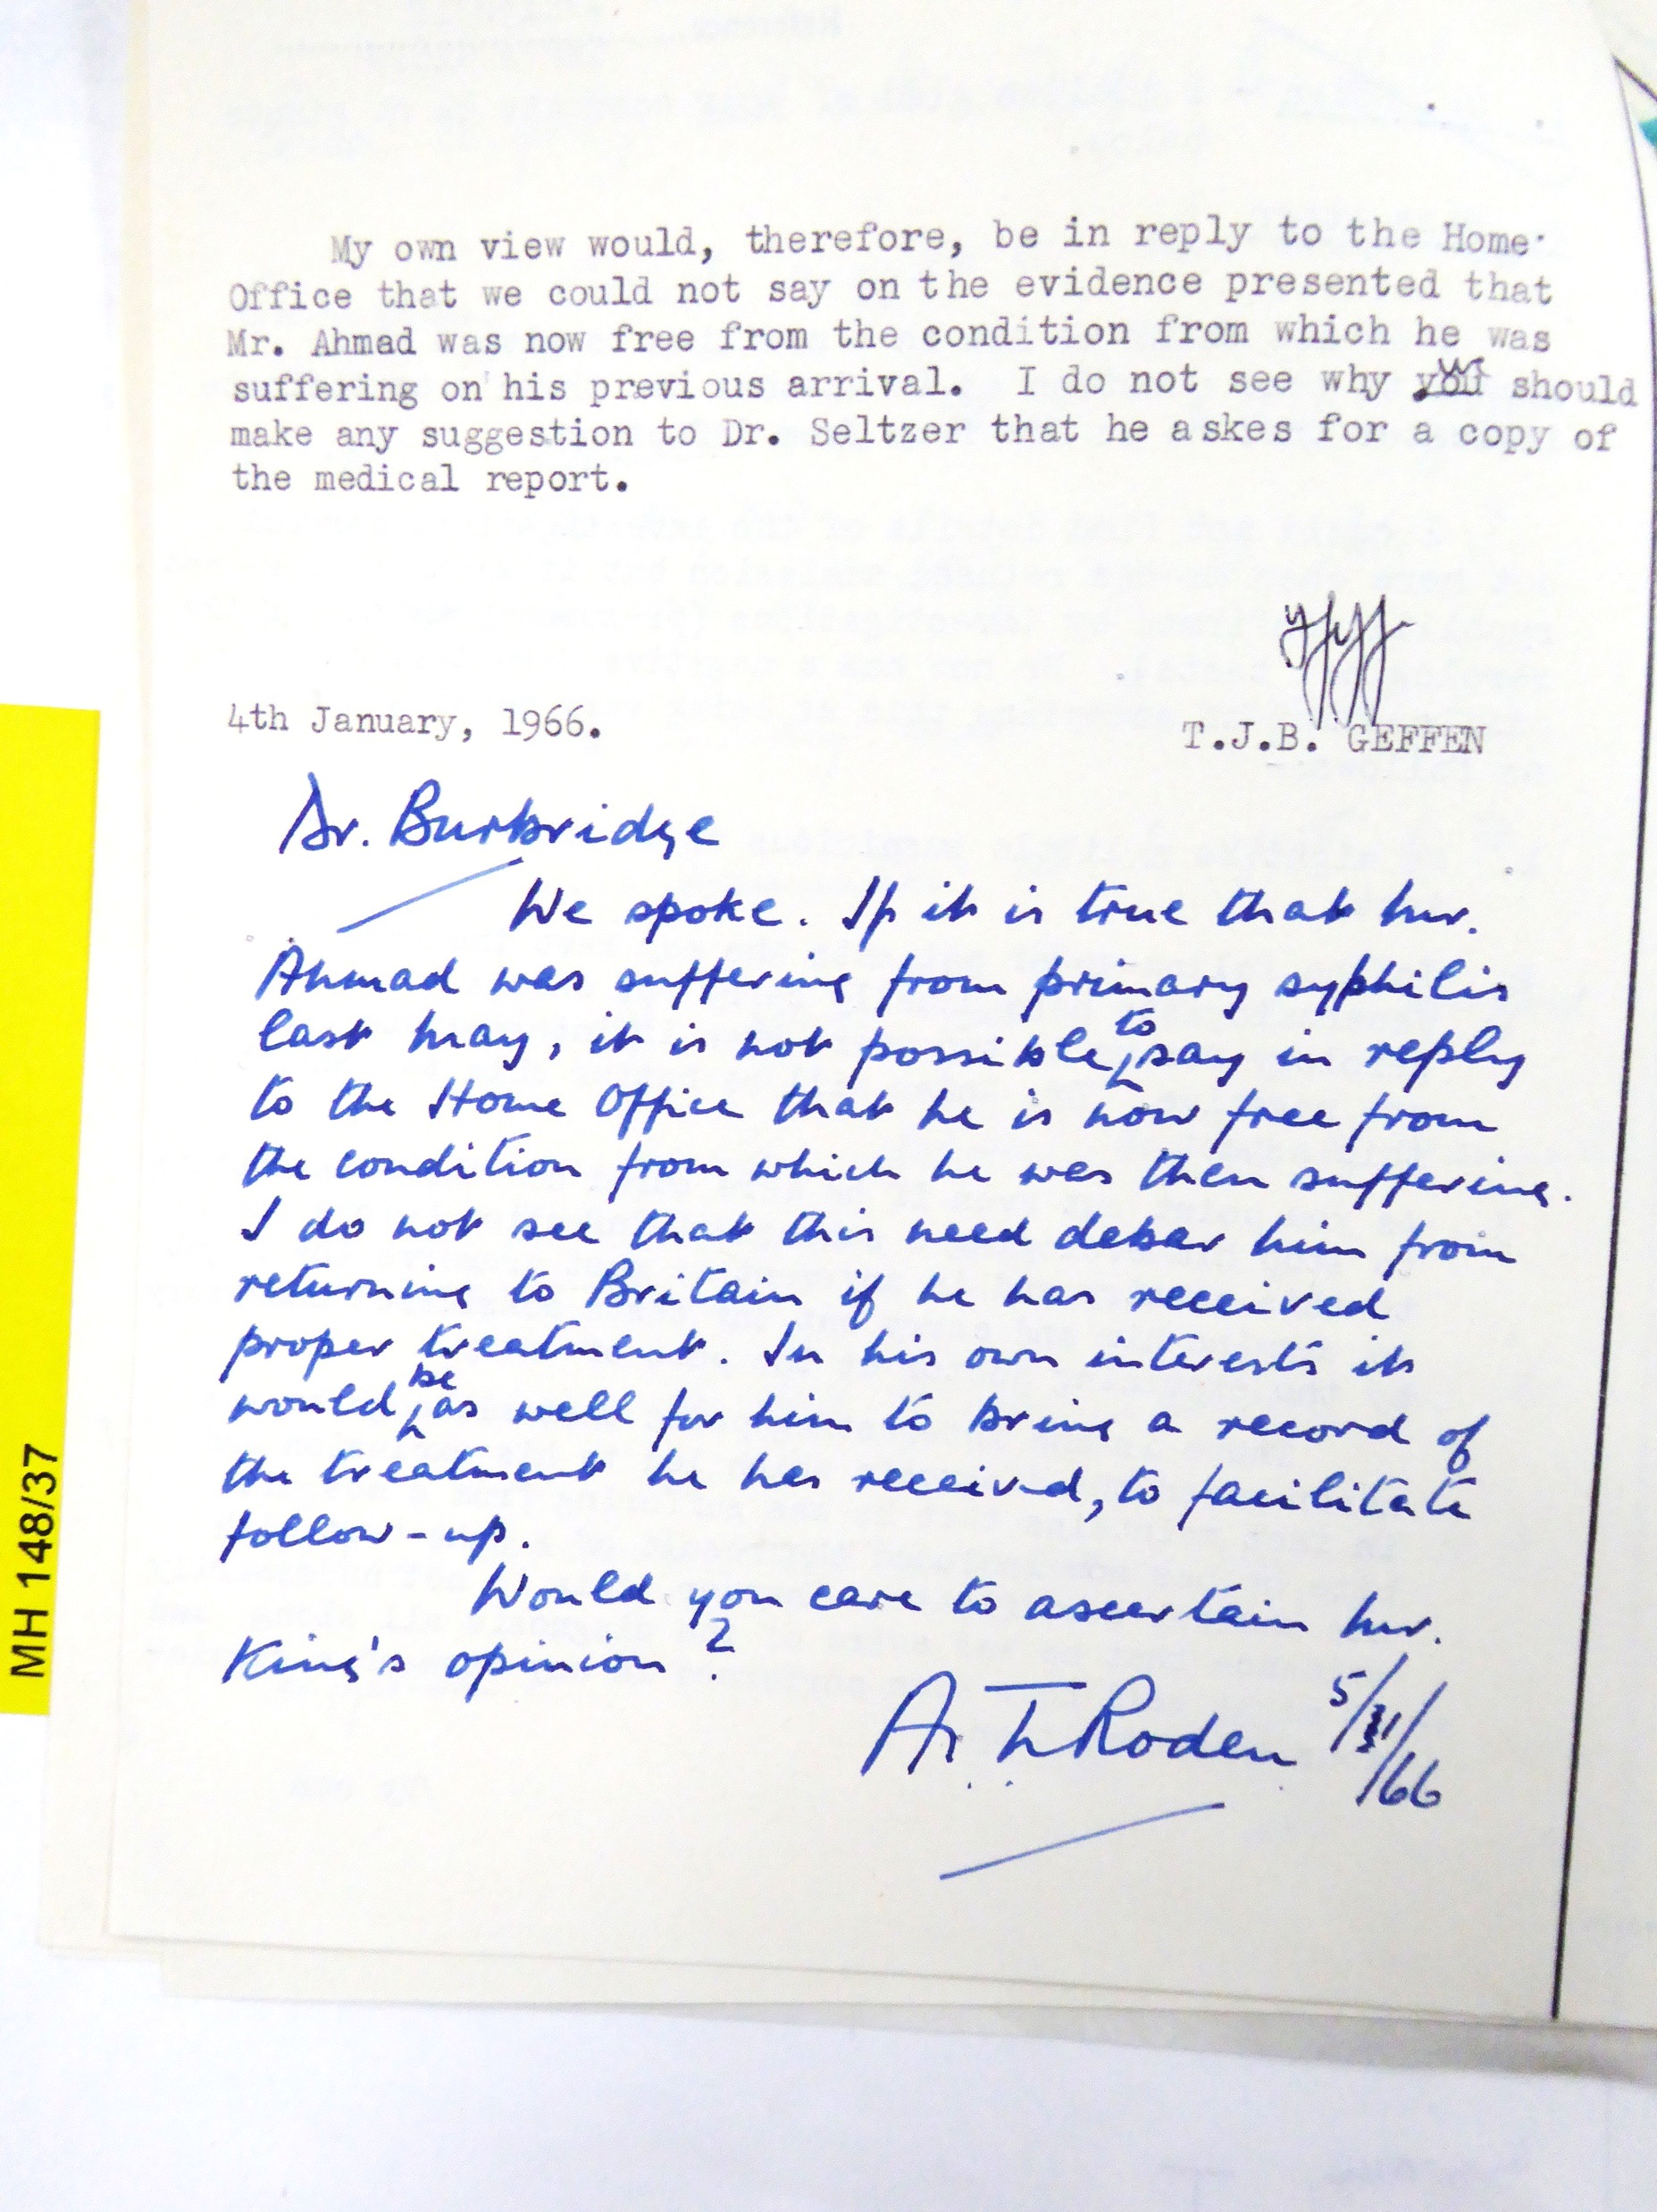 My own view would, therefore, be in reply to the Home
Office that we could not say on the evidence presented that
Mr. Ahmad was now free from the condition from which he was
suffering on his previous arrival. I do not see why we should
make any suggestion to Dr. Seltzer that he askes for a copy of
the medical report.
4th January, 1966.
T.J.B. GEFFEN
Dr. Burbridge
We spoke. If it is true that Mr.
Ahmad was suffering from primary syphilis
last May, it is not possible to say in reply
to the Home Office that he is now free from
the condition from which he was then suffering.
I do not see that this need debar him from
returning to Britain if he has received
proper treatment. In his own interests it
would be as well for him to bring a record of
the treatment he has received, to facilitate
follow-up.
Would you care to ascertain Mr.
King's opinion?
Roden 5/ /66
MH 148/37